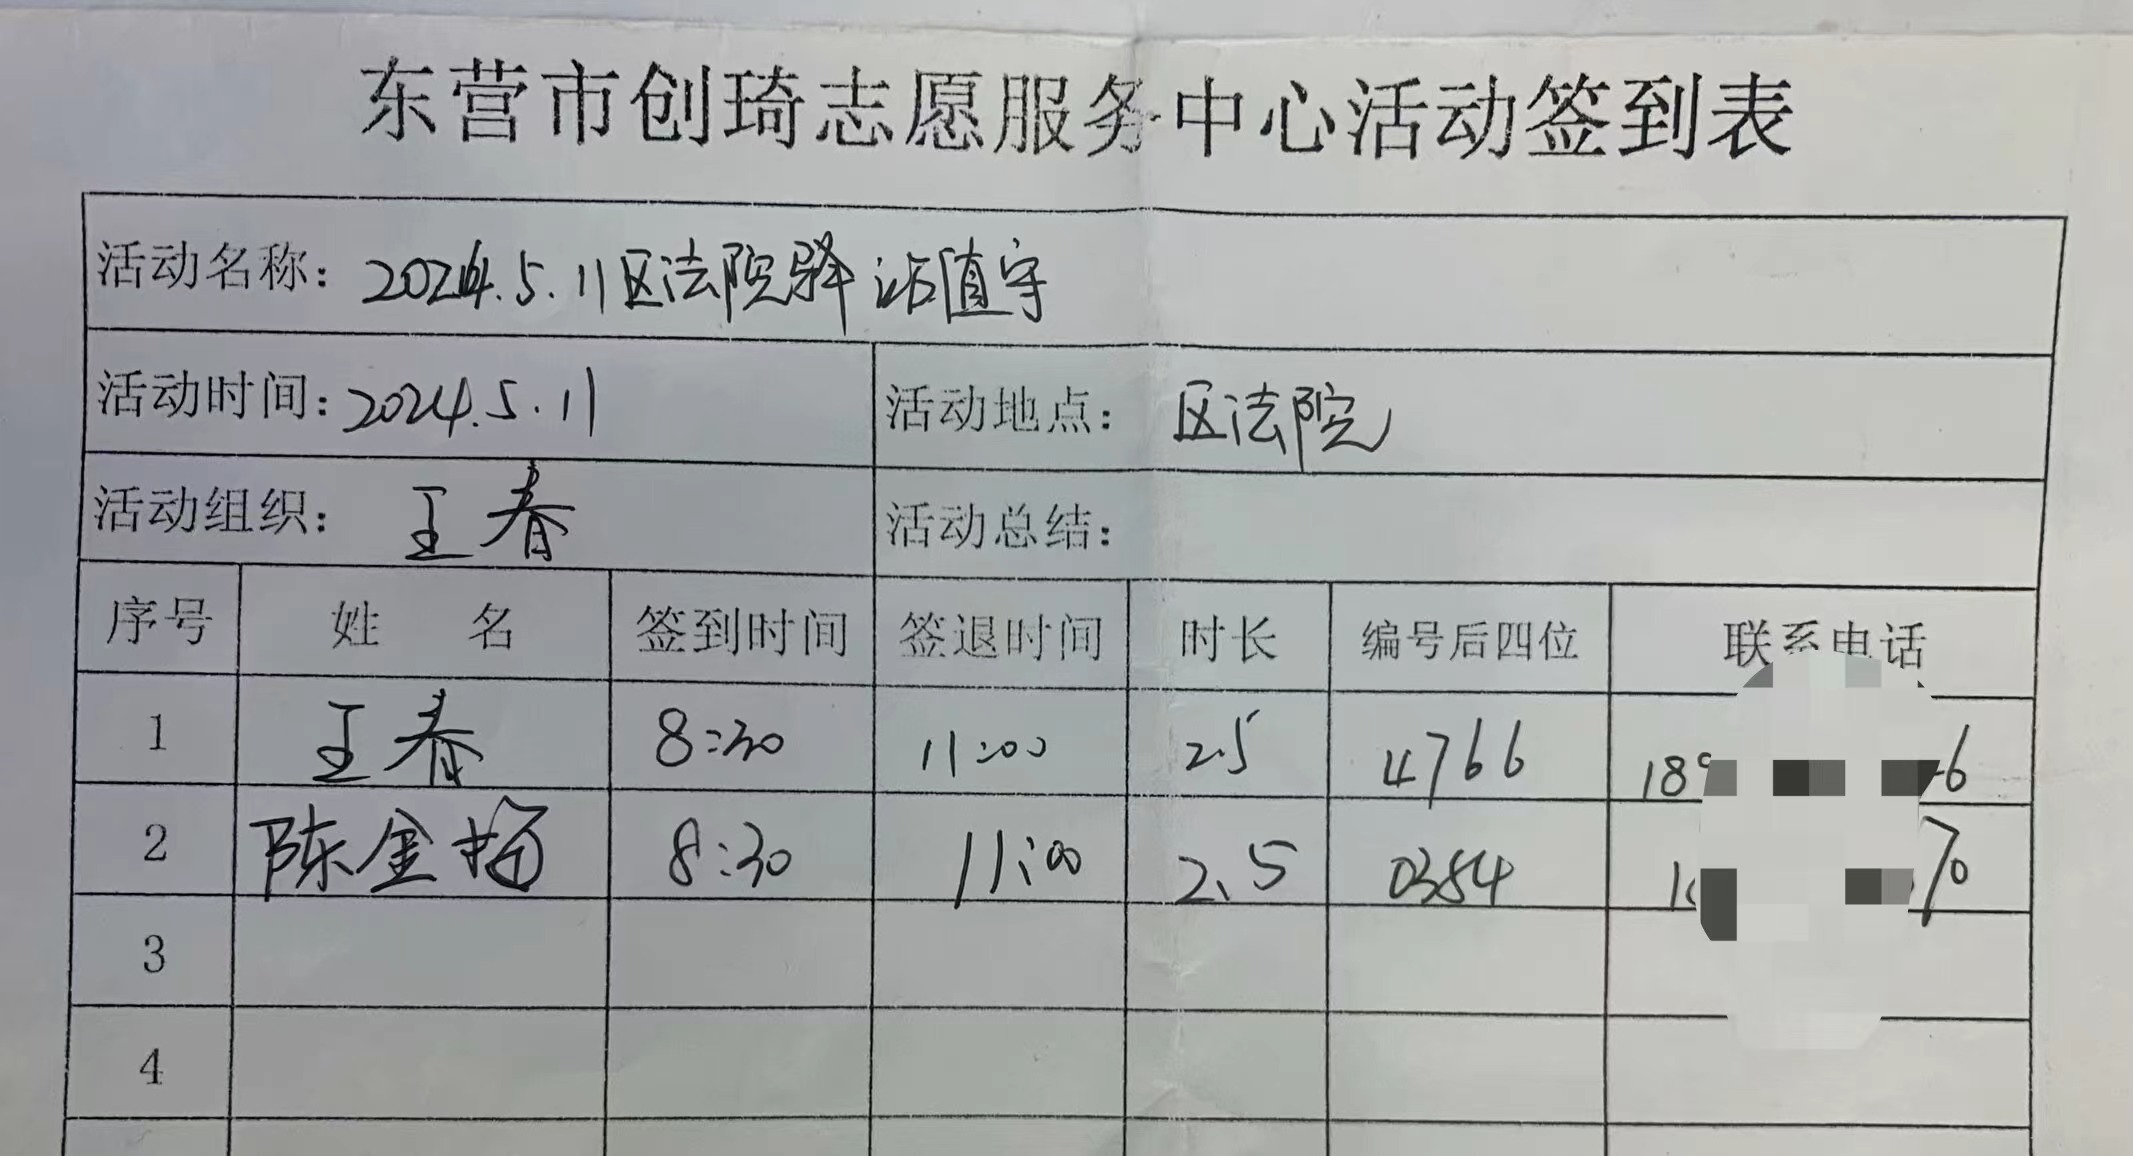 东营市创琦志愿服务中心活动签到表
活动名称：2024.5.11区法院驿站值守
活动时间：2024.5.11 活动地点：区法院
活动组织：王春 活动总结：
序号 姓名 签到时间 签退时间 时长 编号后四位 联系电话
1 王春 8:30 11:00 2.5 4766
2 陈金梅 8:30 11:00 2.5 0354
3
4